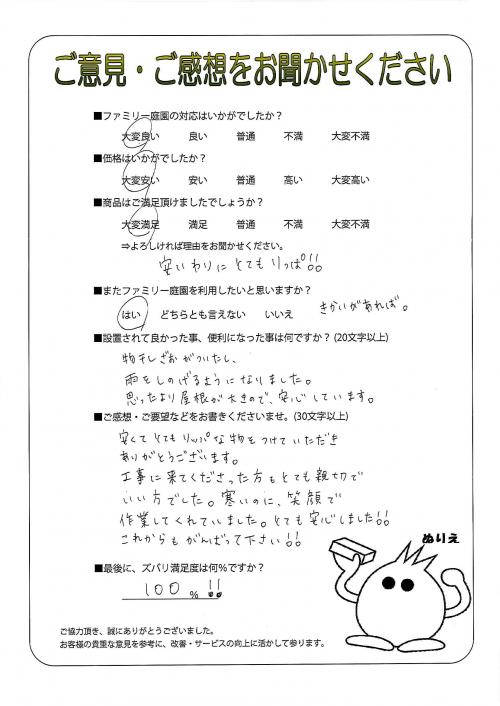 ご意見・ご感想をお聞かせください
■ファミリー庭園の対応はいかがでしたか？
大変良い 良い 普通 不満 大変不満
■価格はいかがでしたか？
大変安い 安い 普通 高い 大変高い
■商品はご満足頂けましたでしょうか？
大変満足 満足 普通 不満 大変不満
⇒よろしければ理由をお聞かせください。
安いわりにとてもりっぱ!!
■またファミリー庭園を利用したいと思いますか？
はい どちらとも言えない いいえ きかいがあれば。
■設置されて良かった事、便利になった事は何ですか？(20文字以上)
物干しざおがついたし、
雨をしのげるようになりました。
思ったより屋根が大きので、安心しています。
■ご感想・ご要望などをお書きくださいませ。(30文字以上)
安くてとてもリッパな物をつけていただき
ありがとうございます。
工事に来てくださった方もとても親切で
いい方でした。寒いのに、笑顔で
作業してくれていました。とても安心しました!!
これからもがんばって下さい!!
ぬりえ
■最後に、ズバリ満足度は何%ですか？
100 % !!
ご協力頂き、誠にありがとうございました。
お客様の貴重な意見を参考に、改善・サービスの向上に活かして参ります。